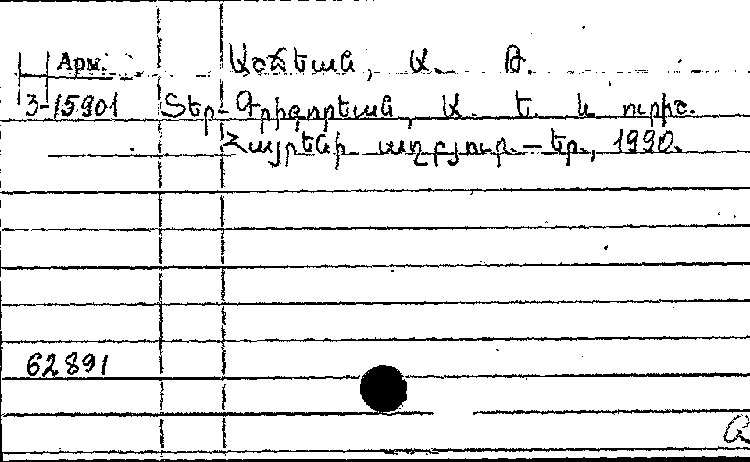 Арм.
Աճճեան, Ա. Թ.
3-15901 Տեր-Գրիգորեան, Ա. Ե. և ուրիշ.
Հայրենի աղբյուր. — Եր., 1990.
62891